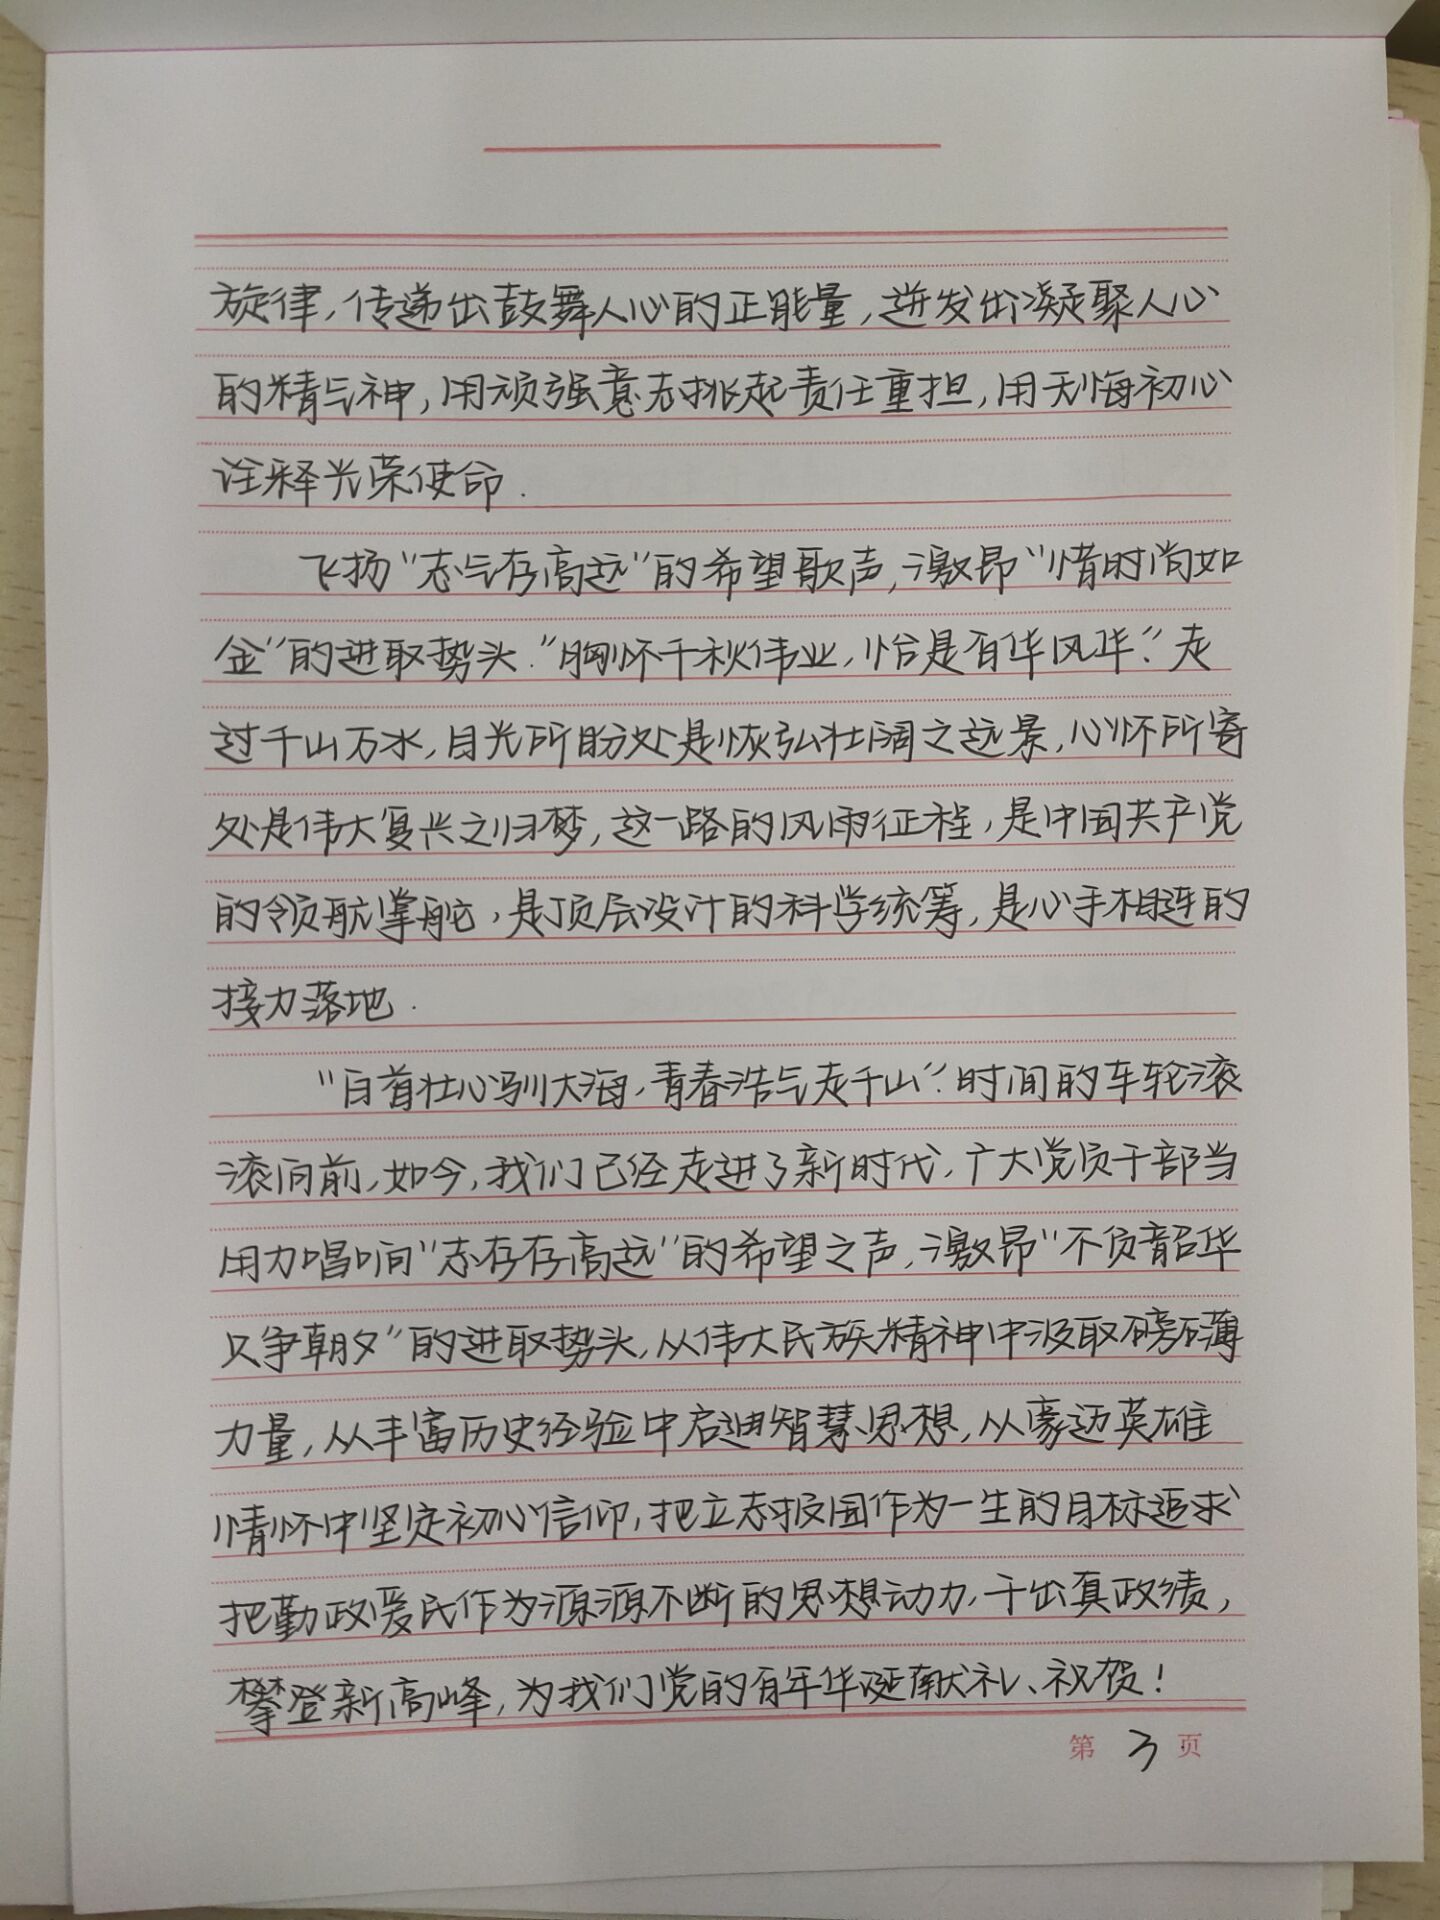 旋律，传递出鼓舞人心的正能量，迸发出凝聚人心
的精气神，用顽强意志挑起责任重担，用无悔初心
诠释光荣使命.
飞扬“志气存高远”的希望歌声，激昂“惜时尚如
金”的进取势头.“胸怀千秋伟业，恰是百年风华”.走
过千山万水，目光所盼处是恢弘壮阔之远景，心怀所寄
处是伟大复兴之归梦，这一路的风雨征程，是中国共产党
的领航掌舵，是顶层设计的科学统筹，是心手相连的
接力落地.
“白首壮心驯大海，青春浩气走千山”.时间的车轮滚
滚向前，如今，我们已经走进了新时代，广大党员干部当
用力唱响“志存存高远”的希望之声，激昂“不负韶华
只争朝夕”的进取势头，从伟大民族精神中汲取磅礴
力量，从丰富历史经验中启迪智慧思想，从豪迈英雄
情怀中坚定初心信仰，把立志报国作为一生的目标追求、
把勤政爱民作为源源不断的思想动力，干出真政绩，
攀登新高峰，为我们党的百年华诞献礼、祝贺！
第 3 页